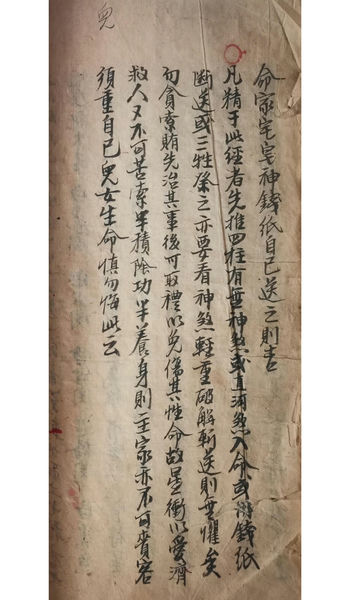 命家宅宅神錢紙自己送之則吉
凡精于此經者先推四柱有無神煞或直消煞入命或用錢紙
斷送或三牲祭之亦要看神煞輕重破解斬送則無懼矣
勿貪索賄先治其事後可取禮以免傷其性命故星衝以愛濟
救人又不可苦索半積陰功半養身則主家亦不可賫客
須重自己兒女生命慎勿悔此云
兒